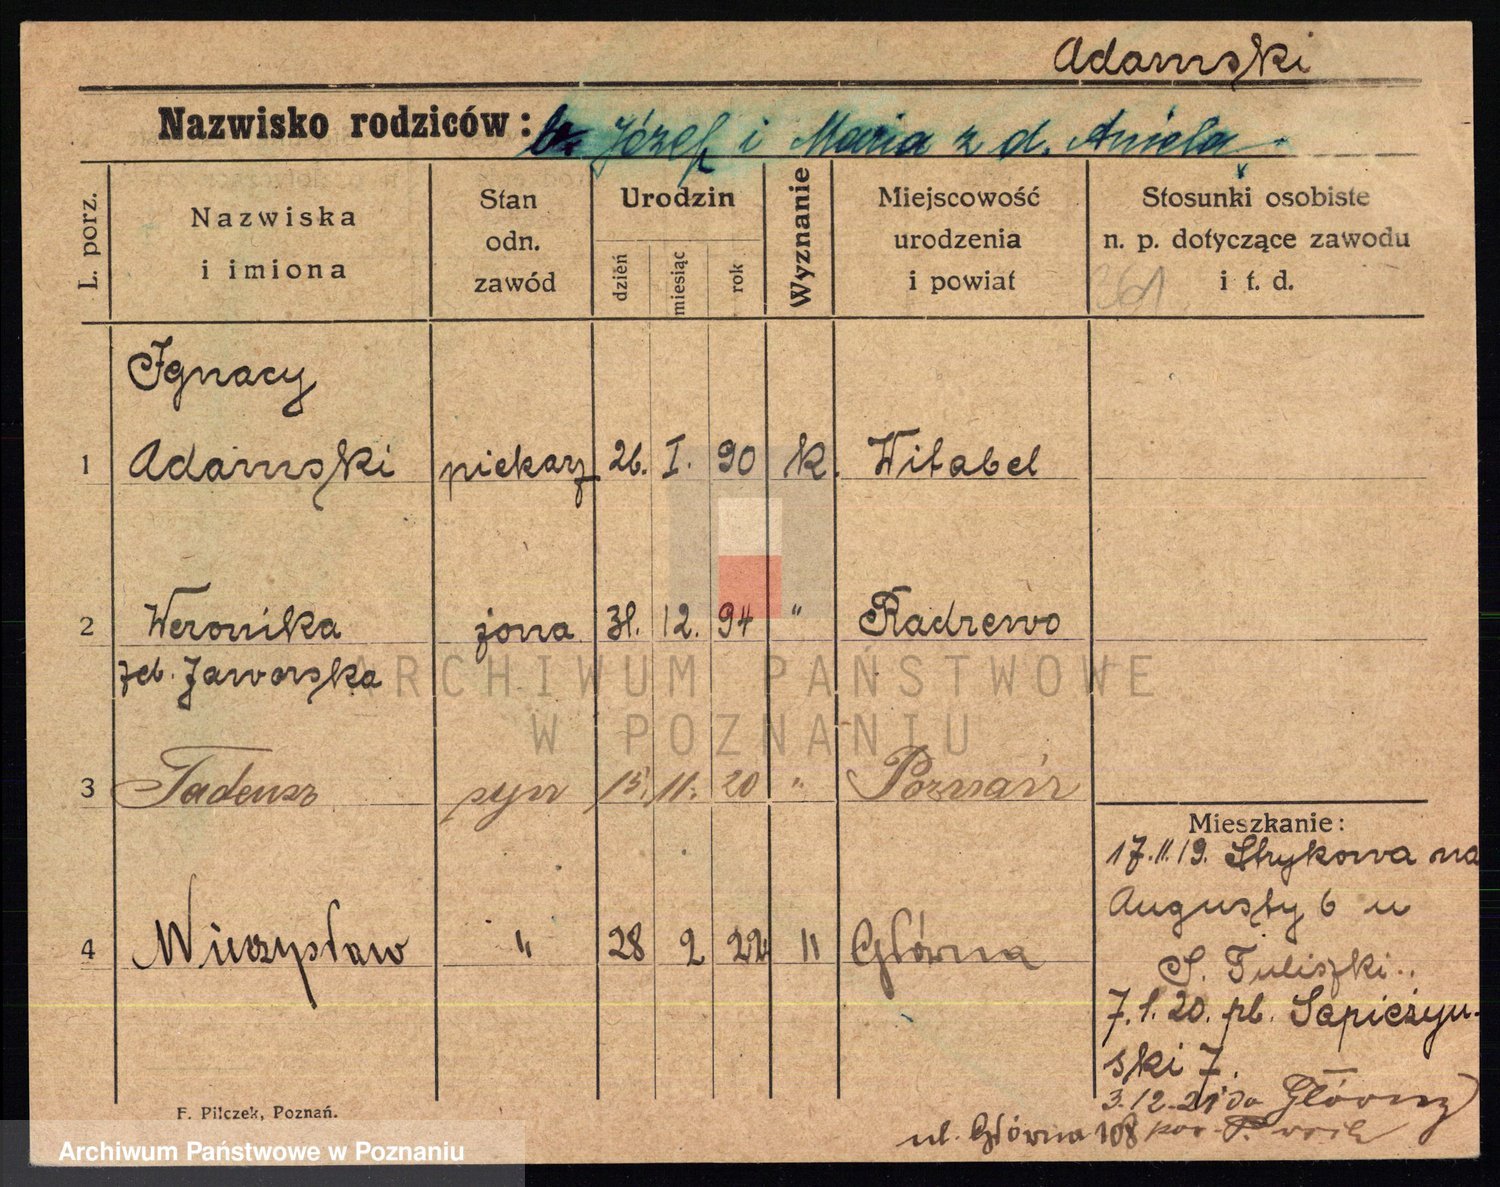 Adamski
Nazwisko rodziców: Józef i Maria z d. Aniela
L. porz.
Nazwiska
i imiona
Stan
odn.
zawód
Urodzin
dzień
miesiąc
rok
Wyznanie
Miejscowość
urodzenia
i powiat
Stosunki osobiste
n. p. dotyczące zawodu
i t. d.
Ignacy
1 Adamski piekarz 26. I. 90 k. Witabel
2 Weronika żona 31. 12. 94 " Radzewo
Jaworska
ARCHIWUM PAŃSTWOWE
W POZNANIU
3 Tadeusz syn 15. 11. 20 " Poznań
Mieszkanie:
17.11.19. Strykowa na
Augusty 6 u
4 Mieczysław " 28 2 22 " Główna
S. Tuliszki..
7.1.20. pl. Sapieżyń-
ski 7.
3.12.21 do Główny
ul. Główna 108
F. Pilczek, Poznań.
Archiwum Państwowe w Poznaniu